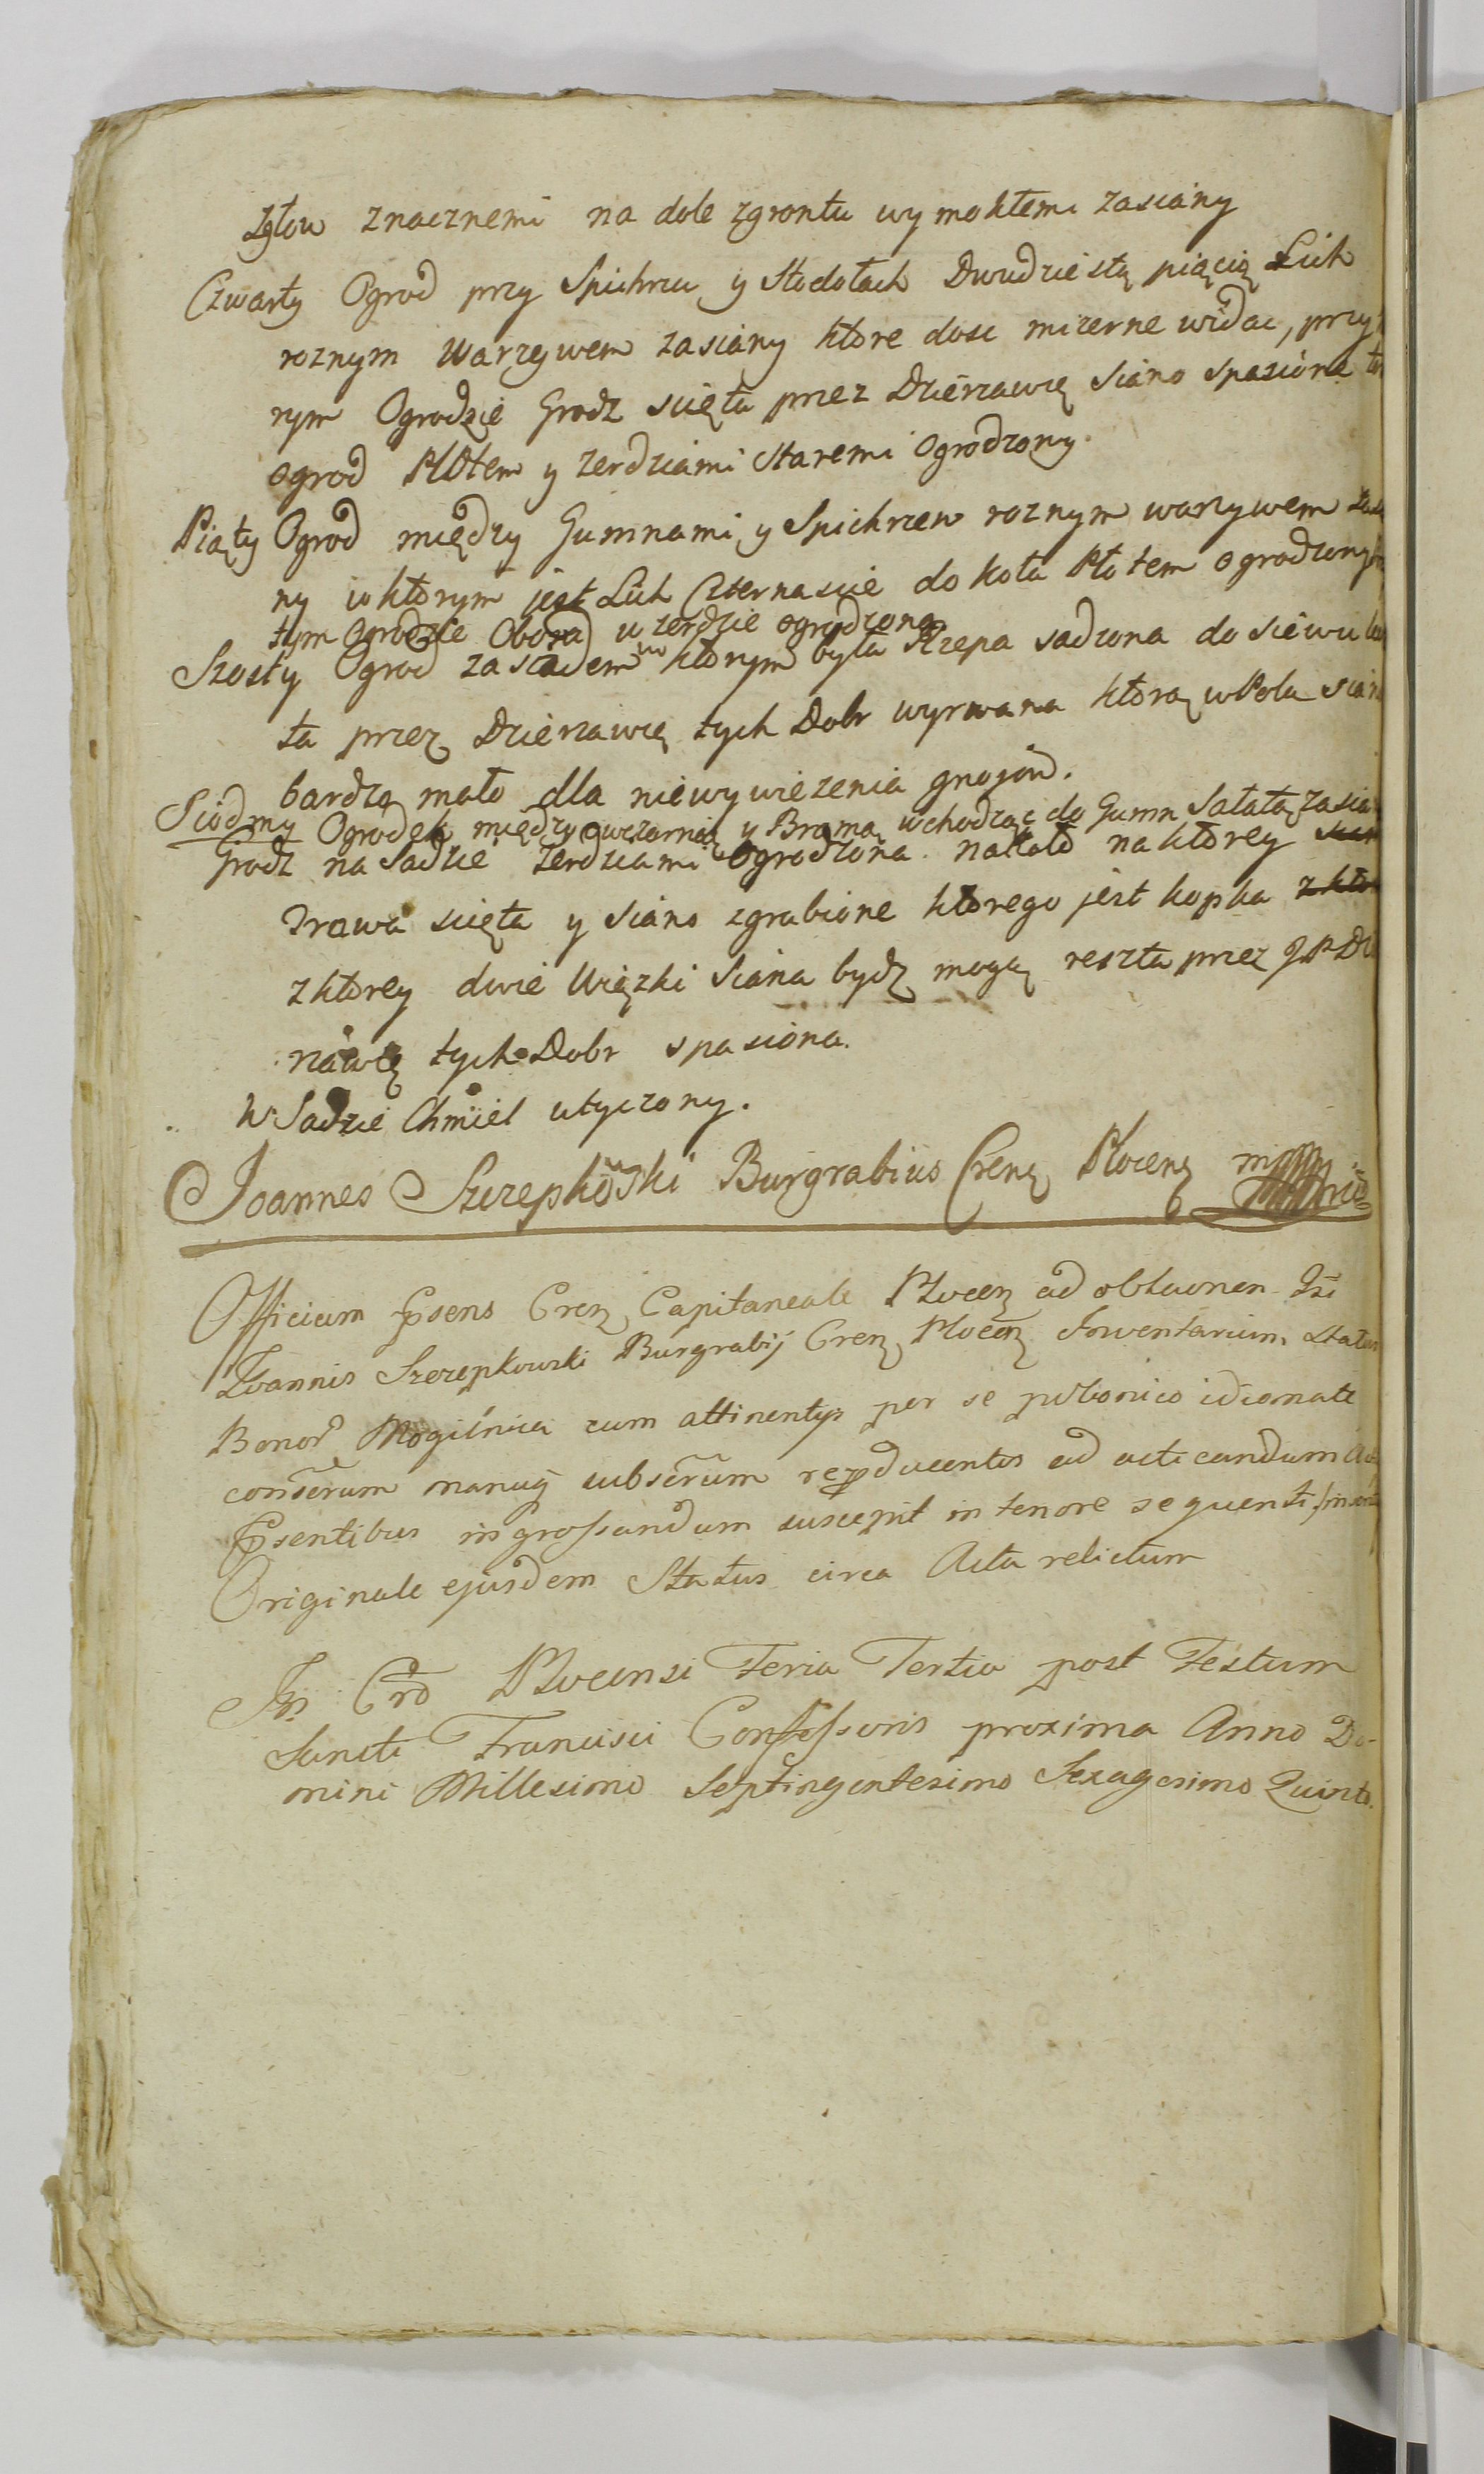 zgłow znacznemi na dole zgrontu wymokłemi zasiany
Czwarty Ogrod przy Spichrzu y Stodołach Dwudziestą pięcią Lich
roznym Warzywem zasiany ktore dosc mizerne widac, przy
rym Ogrodzie Grodz scięta przez Dzierzawcę Siano spasione
ogrod Płotem y zerdziami Staremi Ogrodzony.
Piąty Ogrod między Gumnami y Spichrzem roznym warzywem
ny w ktorym jest Lich Czternascie do koła Płotem ogrodzony
tym Ogrodzie Obora w zerdzie ogrodzona
Szosty Ogrod za sadem w ktorym była Rzepa sadzona do siewu
ta przez Dzierzawcę tych Dobr wyrwana ktorą w Polu
bardzo mało dla niewywiezenia gnojów.
Siodmy Ogrodek między owczarnią y Bramą wchodząc do Gumn Sałatą
Grodz na Sadzie zerdziami ogrodzona nakoło na ktorey
Trawa scięta y Siano zgrabione ktorego jest kopka
z ktorey dwie Wiązki Siana bydz mogą reszta przez J P
rzawcę tych Dobr spasiona.
W Sadzie Chmiel utyczony.
Joannes Szczepkowski Burgrabius Crens Płocens mp
Officium Psens Cren Capitaneale Plocen ad oblaonen
Joannis Szczepkowski Burgrabij Cren Plocen Inventarium Status
Bonor Mogilnica cum attinentijs per se polonico idiomate
conscrum manuq subscrum reproducentis ad acticandum
Psentibus ingrossandum suscepit in tenore sequenti
Originale ejusdem Status circa Acta relictum
In Crō Plocensi Feria Tertia post Festum
Sancti Francisci Confessoris proxima Anno Do-
mini Millesimo Septingentesimo Sexagesimo Quinto.